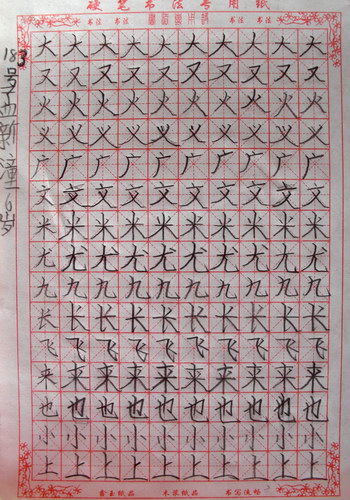 硬笔书法专用纸
书法 书法 书法 书法
183号 新潼 6岁
大大大大大大大大大大
又又又又又又又又又又
火火火火火火火火火火
义义义义义义义义义义
广广广广广广广广广广
文文文文文文文文文文
米米米米米米米米米米
尤尤尤尤尤尤尤尤尤尤
九九九九九九九九九九
长长长长长长长长长长
飞飞飞飞飞飞飞飞飞飞
来来来来来来来来来来
也也也也也也也也也也
小小小小小小小小小小
上上上上上上上上上上
纸品 木浆纸品 书写流畅